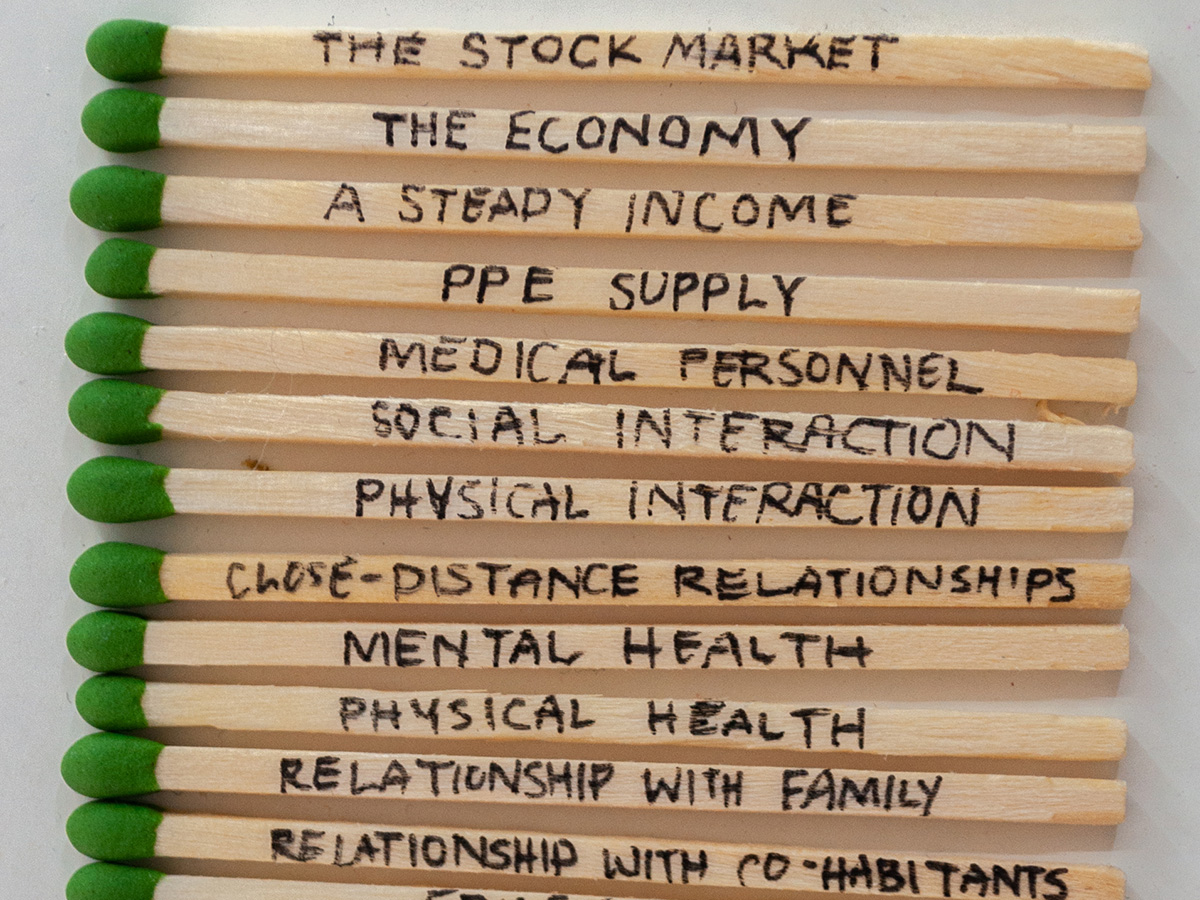 THE STOCK MARKET
THE ECONOMY
A STEADY INCOME
PPE SUPPLY
MEDICAL PERSONNEL
SOCIAL INTERACTION
PHYSICAL INTERACTION
CLOSE-DISTANCE RELATIONSHIPS
MENTAL HEALTH
PHYSICAL HEALTH
RELATIONSHIP WITH FAMILY
RELATIONSHIP WITH CO-HABITANTS